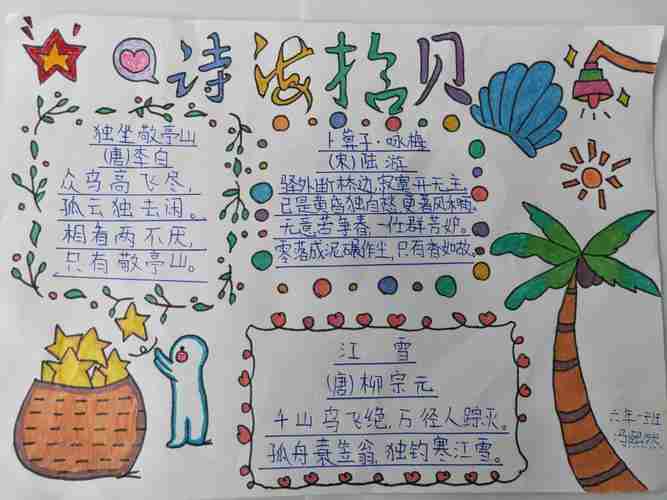 诗海拾贝
独坐敬亭山
(唐)李白
众鸟高飞尽,
孤云独去闲。
相看两不厌,
只有敬亭山。
卜算子·咏梅
(宋)陆游
驿外断桥边,寂寞开无主。
已是黄昏独自愁,更著风和雨。
无意苦争春,一任群芳妒。
零落成泥碾作尘,只有香如故。
江雪
(唐)柳宗元
千山鸟飞绝,万径人踪灭。
孤舟蓑笠翁,独钓寒江雪。
六年一班
冯熙然